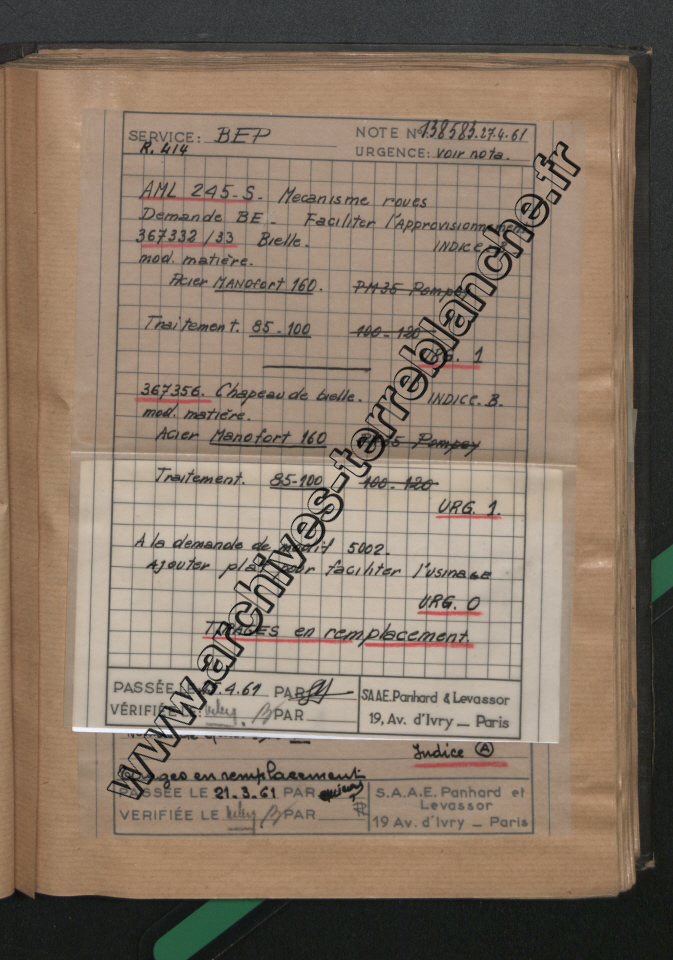 SERVICE: BEP NOTE N° 138583. 27.4.61
R. 414 URGENCE: voir nota.
AML 245-S. Mecanisme roues
Demande BE - Faciliter l'Approvisionnement
367332/33 Bielle. INDICE
mod. matière.
Acier MANOFORT 160. PM35 Pompey
Traitement. 85-100 100-120
URG. 1
367356. Chapeau de bielle. INDICE. B.
mod. matière.
Acier Manofort 160 PM35 Pompey
Traitement. 85-100 100-120
URG. 1.
A la demande de modif 5002.
Ajouter plat pour faciliter l'usinage
URG. 0
TIRAGES en remplacement.
PASSÉE LE .4.61 PAR
VÉRIFIÉE LE PAR
S.A.A.E. Panhard & Levassor
19, Av. d'Ivry _ Paris
Indice A
Tirages en remplacement
PASSÉE LE 21.3.61 PAR
VERIFIÉE LE PAR
S.A.A.E. Panhard et
Levassor
19 Av. d'Ivry _ Paris
www.archives-terreblanche.fr